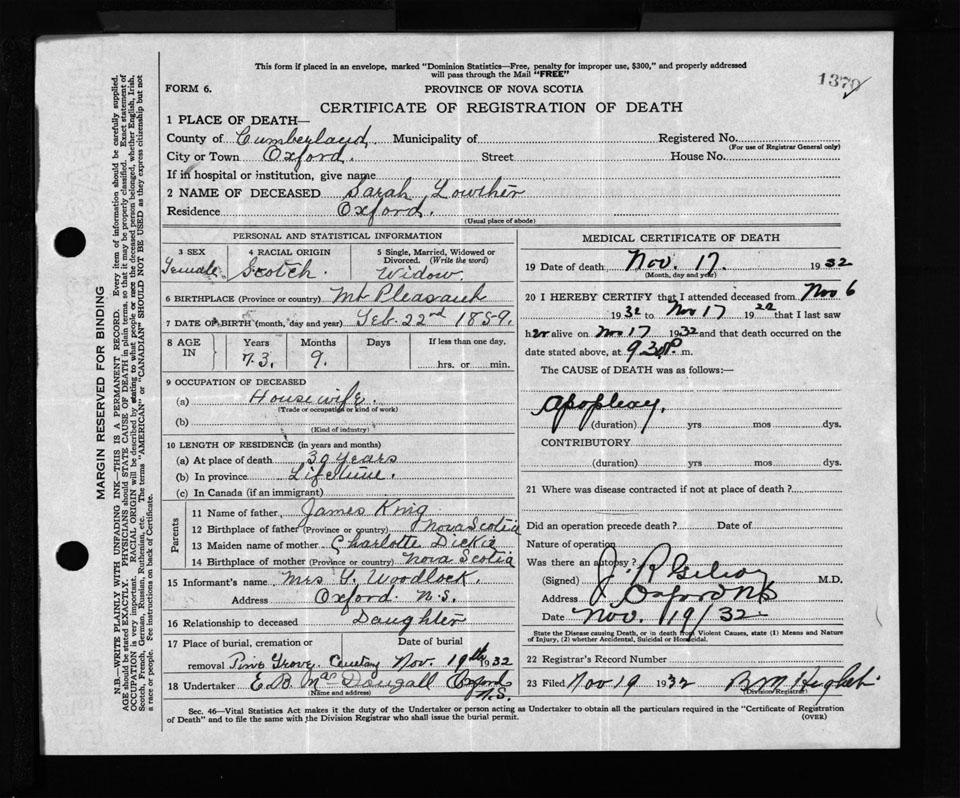 This form if placed in an envelope, marked "Dominion Statistics—Free, penalty for improper use, $300," and properly addressed
will pass through the Mail "FREE"
1370
FORM 6.
PROVINCE OF NOVA SCOTIA
CERTIFICATE OF REGISTRATION OF DEATH
1 PLACE OF DEATH—
County of Cumberland Municipality of Registered No.
(For use of Registrar General only)
City or Town Oxford. Street House No.
If in hospital or institution, give name
2 NAME OF DECEASED Sarah Lowther
Residence Oxford.
(Usual place of abode)
PERSONAL AND STATISTICAL INFORMATION
3 SEX 4 RACIAL ORIGIN 5 Single, Married, Widowed or
Divorced. (Write the word)
Female Scotch. Widow.
6 BIRTHPLACE (Province or country) Mt Pleasant
7 DATE OF BIRTH (month, day and year) Feb. 22nd 1859.
8 AGE IN Years Months Days If less than one day,
73. 9. hrs. or min.
9 OCCUPATION OF DECEASED
(a) Housewife.
(Trade or occupation or kind of work)
(b)
(Kind of industry)
10 LENGTH OF RESIDENCE (in years and months)
(a) At place of death 30 years
(b) In province Lifetime.
(c) In Canada (if an immigrant)
Parents
11 Name of father James King
12 Birthplace of father (Province or country) Nova Scotia
13 Maiden name of mother Charlotte Dickie
14 Birthplace of mother (Province or country) Nova Scotia
15 Informant's name Mrs Woodlock.
Address Oxford. N.S.
16 Relationship to deceased Daughter
17 Place of burial, cremation or Date of burial
removal Pine Grove Cemetery Nov. 19th 1932
18 Undertaker E B MacDougall Oxford
N.S.
MEDICAL CERTIFICATE OF DEATH
19 Date of death Nov. 17. 1932
(Month, day and year)
20 I HEREBY CERTIFY that I attended deceased from Nov 6
1932 to Nov 17 19 that I last saw
her alive on Nov 17 1932 and that death occurred on the
date stated above, at 9 30 P. m.
The CAUSE of DEATH was as follows:—
Apoplexy.
(duration) yrs mos dys.
CONTRIBUTORY
(duration) yrs mos dys.
21 Where was disease contracted if not at place of death?
Did an operation precede death? Date of
Nature of operation
Was there an autopsy?
(Signed) J. R. M.D.
Address Oxford NS
Date Nov. 19/32
State the Disease causing Death, or in death from Violent Causes, state (1) Means and Nature
of Injury, (2) whether Accidental, Suicidal or Homicidal.
22 Registrar's Record Number
23 Filed Nov 19 1932 B M
(Division Registrar)
Sec. 46—Vital Statistics Act makes it the duty of the Undertaker or person acting as Undertaker to obtain all the particulars required in the "Certificate of Registration
of Death" and to file the same with the Division Registrar who shall issue the burial permit. (OVER)
MARGIN RESERVED FOR BINDING
N.B.—WRITE PLAINLY WITH UNFADING INK—THIS IS A PERMANENT RECORD. Every item of information should be carefully supplied.
AGE should be stated EXACTLY. PHYSICIANS should STATE CAUSE OF DEATH in plain terms, so that it may be properly classified. Exact statement of
OCCUPATION is very important. RACIAL ORIGIN will be described by stating to what people or race the deceased person belonged, whether English, Irish,
Scotch, French, German, Russian, Ruthenian, etc. The terms "AMERICAN" or "CANADIAN" SHOULD NOT BE USED as they express citizenship but not
a race or people. See instructions on back of Certificate.